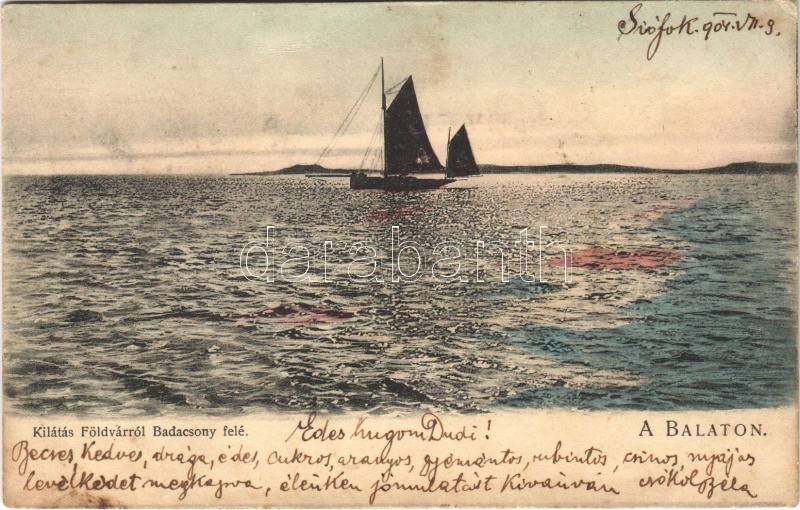 Siófok. 904. VII. 9.
darabanth
Kilátás Földvárról Badacsony felé.
Edes hugom Dudi!
A BALATON.
Becses, Kedves, drága, édes, cukros, aranyos, gyémántos, rubintos, csinos, nyájas
levélkedet megkapva, élénken jó mulatást kivánván csókol Béla